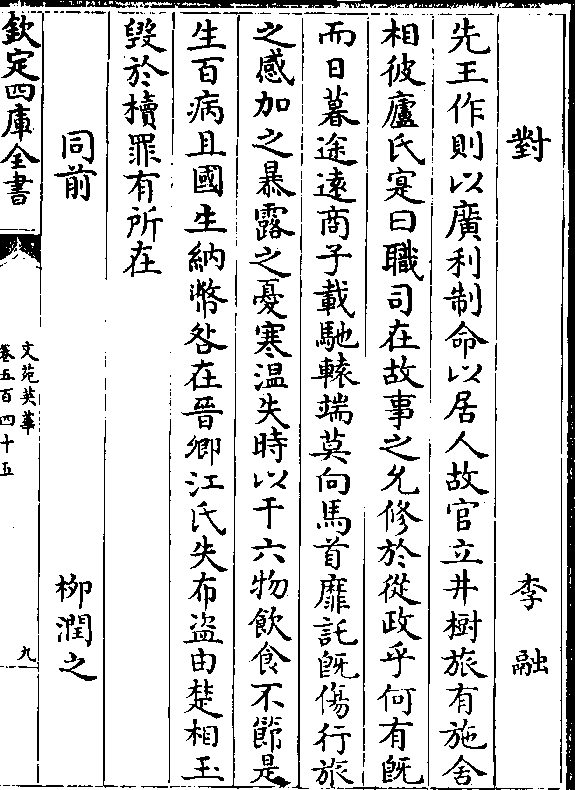 對 李融
先王作則以廣利制命以居人故官立井樹旅有施舍
相彼廬氏寔曰職司在故事之允修於從政乎何有既
而日暮途遠商子載馳轅端莫向馬首靡託既傷行旅
之感加之暴露之憂寒温失時以干六物飲食不節是
生百病且國生納幣咎在晉卿江氏失布盗由楚相玉
毀於櫝罪有所在
同前 栁潤之
欽定四庫全書
文苑英華
卷五百四十五
九